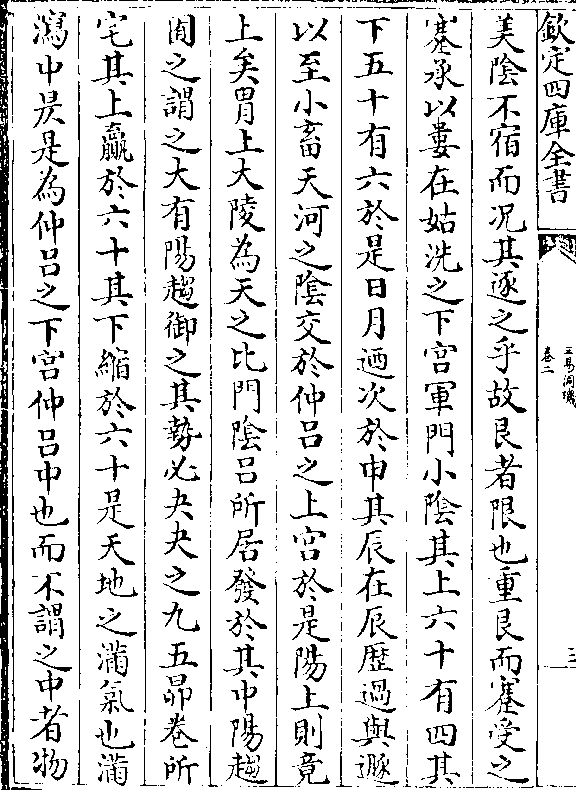 欽定四庫全書
三易洞璣
卷二
三
美陰不宿而况其逐之乎故艮者限也重艮而蹇受之
蹇承以婁在姑洗之下宫軍門小陰其上六十有四其
下五十有六於是日月迺次於申其辰在辰歴過與遯
以至小畜天河之陰交於仲吕之上宫於是陽上則竟
上矣胃上大陵為天之比門陰吕所居發於其中陽趨
閲之謂之大有陽趨御之其勢必夬夬之九五昴卷所
宅其上贏於六十其下縮於六十是天地之滿氣也滿
瀉中昃是為仲吕之下宫仲吕中也而不謂之中者物